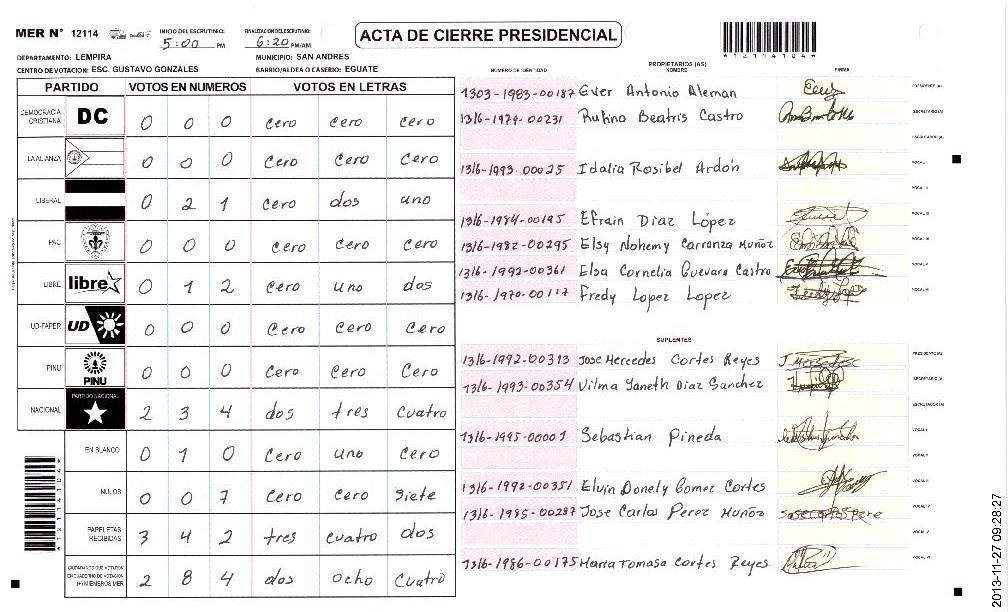 MER N° 12114
INICIO DEL ESCRUTINIO: 5:00 PM
FINALIZACION DEL ESCRUTINIO: 6:20 PM/AM
ACTA DE CIERRE PRESIDENCIAL
*12114104*
DEPARTAMENTO: LEMPIRA
MUNICIPIO: SAN ANDRES
CENTRO DE VOTACION: ESC. GUSTAVO GONZALES
BARRIO/ALDEA O CASERIO: EGUATE
PARTIDO VOTOS EN NUMEROS VOTOS EN LETRAS
DEMOCRACIA CRISTIANA DC 0 0 0 cero cero cero
LA ALIANZA 0 0 0 cero cero cero
LIBERAL 0 2 1 cero dos uno
PAC 0 0 0 cero cero cero
LIBRE libre 0 1 2 cero uno dos
UD-FAPER UD 0 0 0 cero cero cero
PINU PINU 0 0 0 cero cero cero
NACIONAL PARTIDO NACIONAL 2 3 4 dos tres cuatro
EN BLANCO 0 1 0 cero uno cero
NULOS 0 0 7 cero cero siete
PAPELETAS RECIBIDAS 3 4 2 tres cuatro dos
CIUDADANOS QUE VOTARON EN CUADERNO DE VOTACION (+) MIEMBROS MER 2 8 4 dos ocho cuatro
*12114104*
PROPIETARIOS (AS)
NUMERO DE IDENTIDAD NOMBRE FIRMA
1303-1983-00187 Ever Antonio Aleman PRESIDENTE (A)
1316-1974-00231 Rufino Beatris Castro SECRETARIO (A)
ESCRUTADOR (A)
1316-1993-00025 Idalia Rosibel Ardón VOCAL I
VOCAL II
1316-1984-00195 Efrain Diaz López VOCAL III
1316-1982-00295 Elsy Nohemy Carranza Muñoz VOCAL IV
1316-1992-00361 Elsa Cornelia Guevara Castro VOCAL V
1316-1970-00117 Fredy Lopez Lopez VOCAL VI
SUPLENTES
1316-1992-00313 Jose Mercedes Cortes Reyes PRESIDENTE (A)
1316-1993-00354 Vilma Yaneth Diaz Sanchez SECRETARIO (A)
ESCRUTADOR (A)
1316-1995-00001 Sebastian Pineda VOCAL I
VOCAL II
1316-1992-00351 Elvin Donely Gomez Cortes VOCAL III
1316-1985-00287 Jose Carlos Perez Muñoz VOCAL IV
VOCAL V
1316-1986-00175 Maria Tomasa Cortes Reyes VOCAL VI
2013-11-27 09:28:27